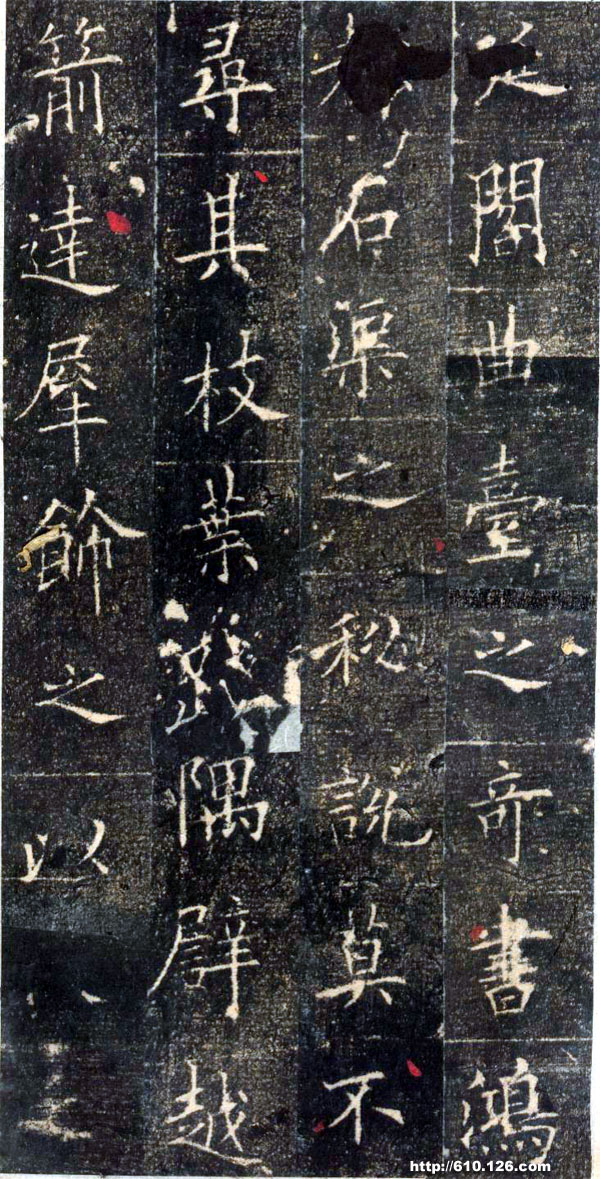 延閣曲臺之奇書鴻
都石渠之秘說莫不
尋其枝葉隅辟越
箭達犀飾之以
http://610.126.com